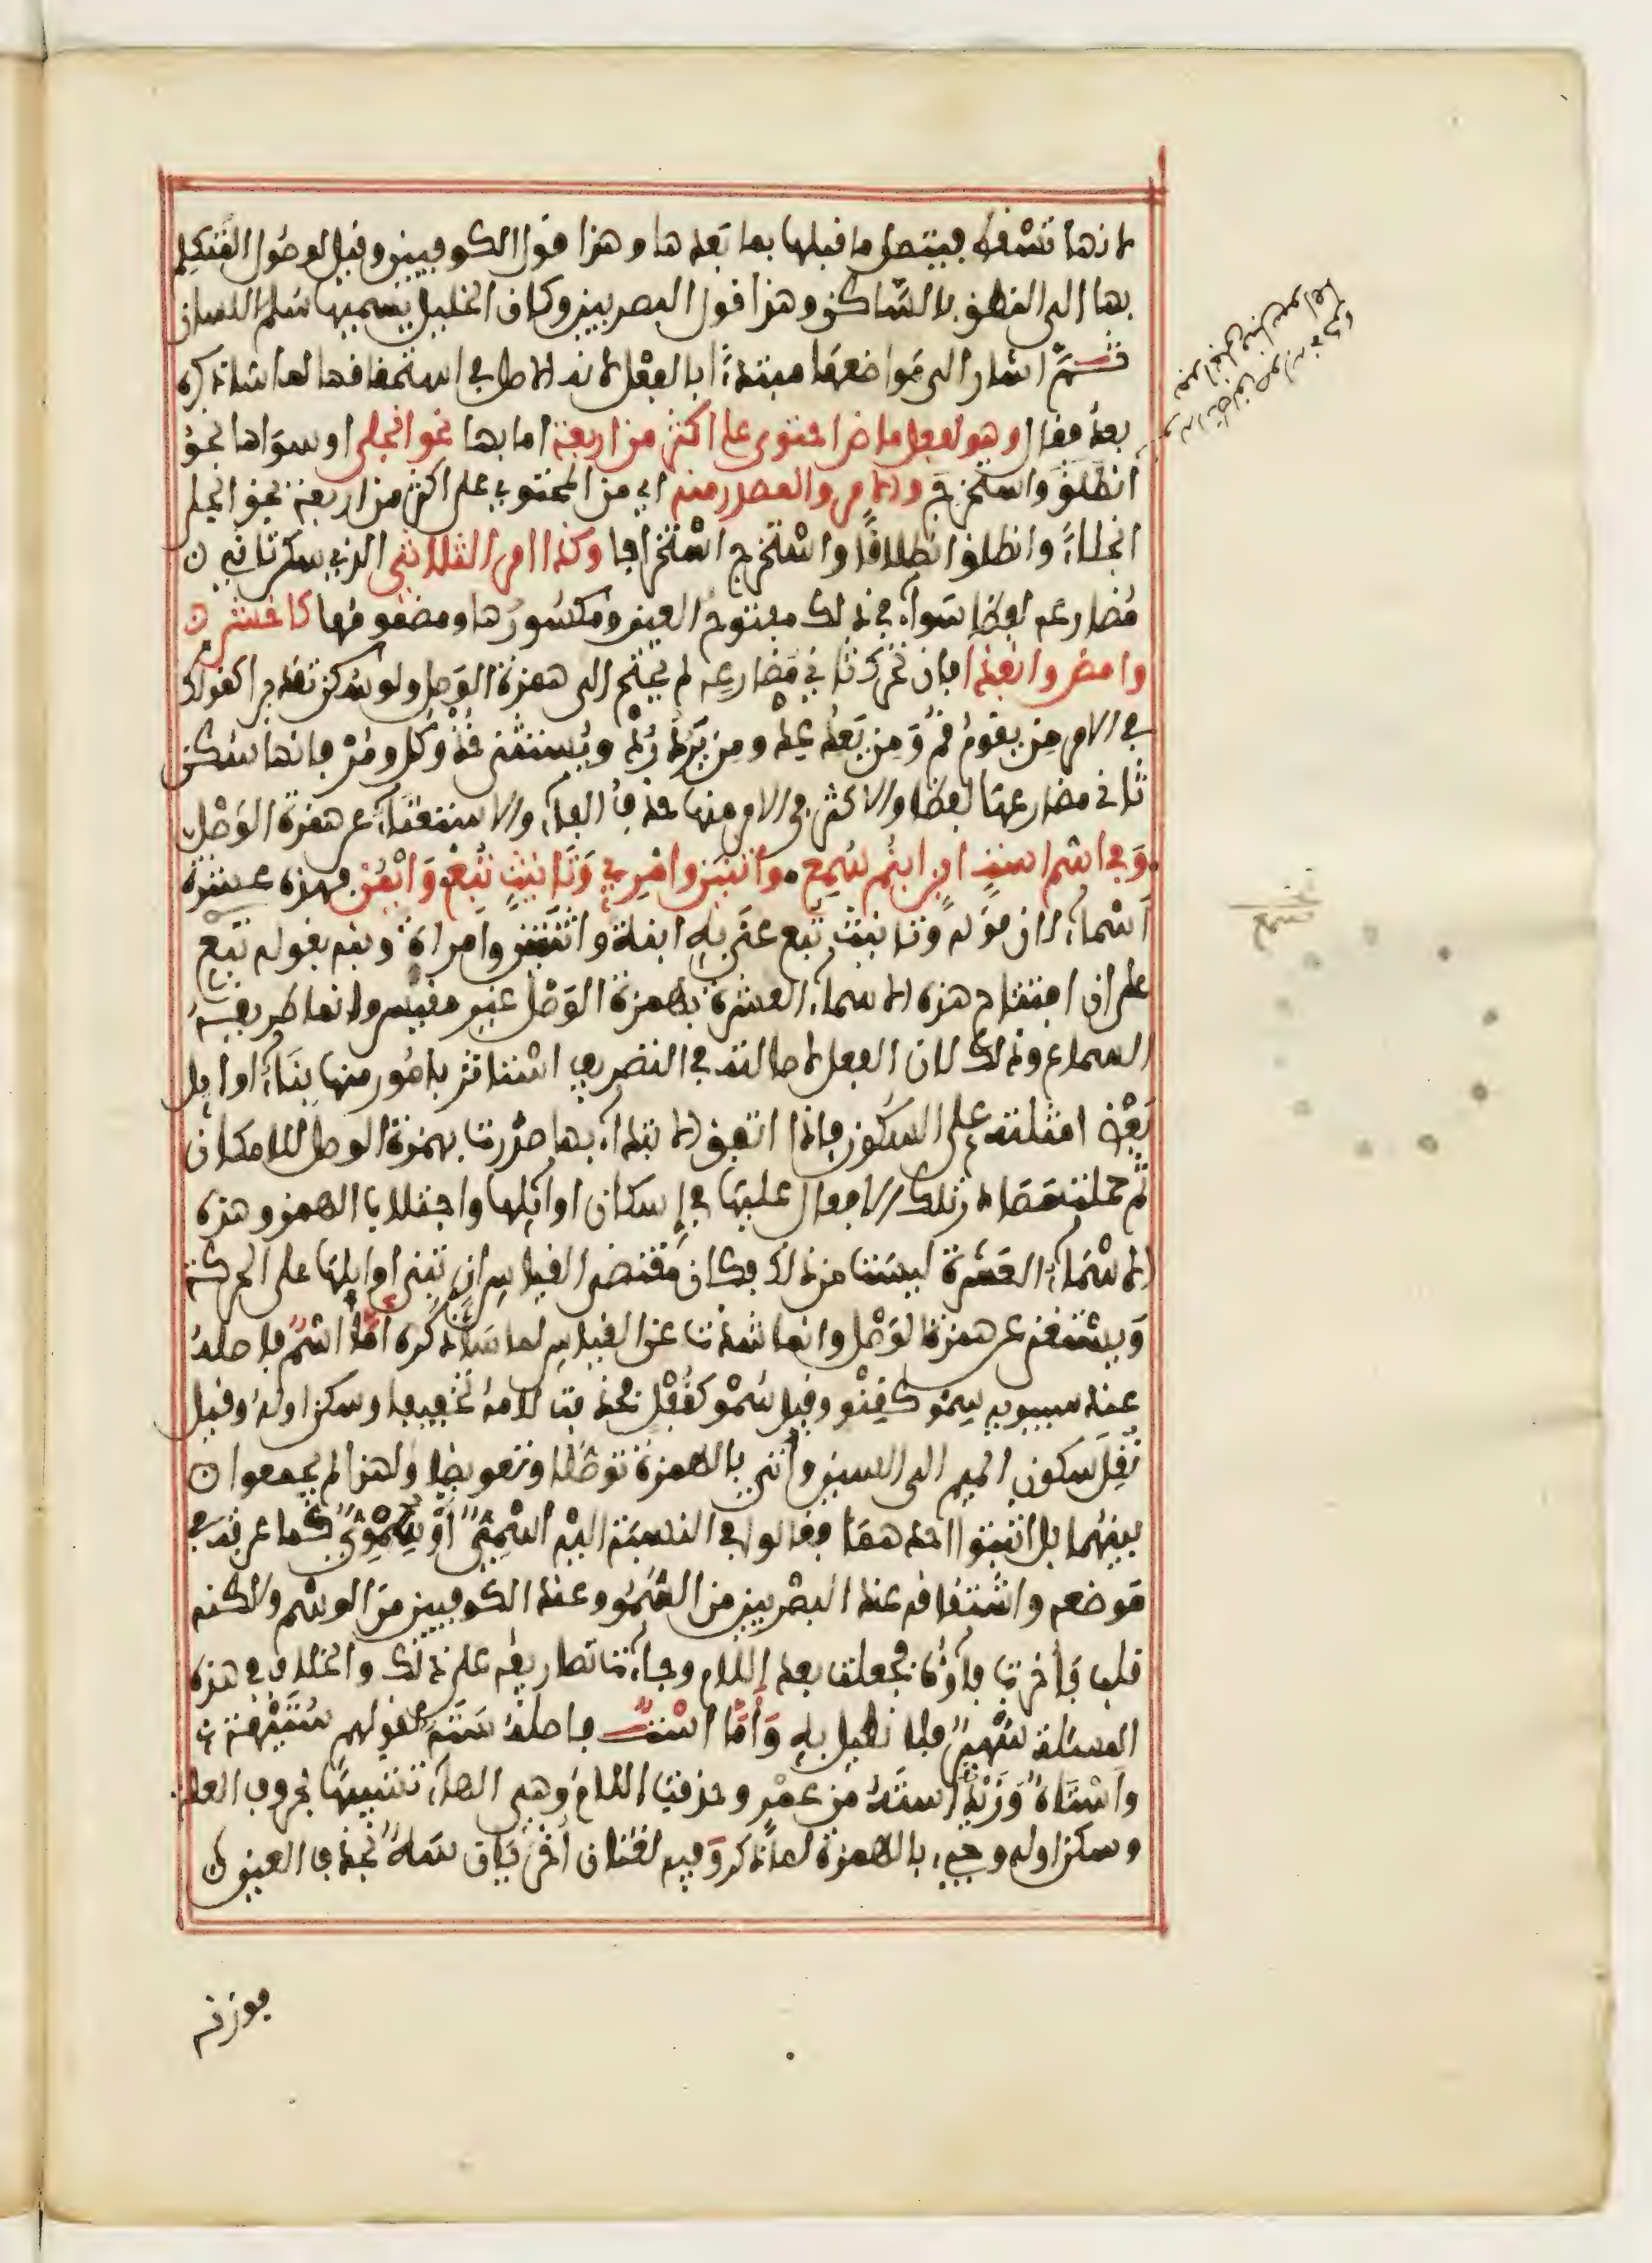 لانها تسقط فيتصل ما قبلها بما بعدها وهذا قول الكوفيين وقيل لوصول المتكلم
بها الى النطق بالساكن وهذا قول البصريين وكان الخليل يسميها سلم اللسان
ثم اشار الى مواضعها مبتدئا بالفعل لانه الاصل في استحقاقها لما سنذكره
بعد فقال وهو لفعل ماض احتوى على اكثر من اربعة اما بها نحو انجلى او سواها نحو
انطلق واستخرج والامر والمصدر منه اي من المحتوي على اكثر من اربعة نحو انجل
انجلاء وانطلق انطلاقا واستخرج استخراجا وكذا امر الثلاثي الذي يسكن ثاني
مضارعه لفظا سواء في ذلك مفتوح العين ومكسورها ومضمومها كاخش
وامض وانفذا فان تحرك ثاني مضارعه لم يحتج الى همزة الوصل ولو سكن تقديرا كقولك
في الامر من يقوم قم ومن يعد عد ومن يرد رد ويستثنى خذ وكل ومر فانها يسكن
ثاني مضارعها لفظا والاكثر في الامر منها حذف الفاء والاستغناء عن همزة الوصل
وفي اسم است ابن ابنم سمع • واثنين وامرئ وتانيث تبع وايمن فهذه عشرة
اسماء لان قوله وتانيث تبع عنى به ابنة واثنتين وامراة ونبه بقوله تبع
على ان افتتاح هذه الاسماء العشرة بهمزة الوصل غير مقيس وانما طريقه
السماع وذلك لان الفعل لاصالته في التصريف استاثر بامور منها بناء اوايل
بعض امثلته على السكون فاذا اتفق الابتداء بها صدرت بهمزة الوصل للامكان
ثم حملت مصادر تلك الافعال عليها في اسكان اوائلها واجتلاب الهمز وهذه
الاسماء العشرة ليست من ذلك فكان مقتضى القياس ان تبنى اوايلها على الحركة
ويستغنى عن همزة الوصل وانما شذت عن القياس لما سنذكره اما اسم فاصله
عند سيبويه سمو كقنو وقيل سمو كقفل فحذفت لامه تخفيفا وسكن اوله وقيل
نقل سكون الميم الى السين واتي بالهمزة توصلا وتعويضا ولهذا لم يجمعوا
بينهما بل اثبتوا احدهما فقالوا في النسبة اليه اسمي او سموي كما عرف في
موضعه واشتقاقه عند البصريين من السمو وعند الكوفيين من الوسم ولكنه
قلب فاخرت فاؤه فجعلت بعد اللام وجاءت تصاريفه على ذلك والخلاف في هذه
المسئلة شهير فلا نطيل به واما است فاصله سته لقولهم ستيهة
واستاه وزيد استه من عمرو وحذفت اللام وهي الهاء تشبيها بحروف العلة
وسكن اوله وجيء بالهمزة لما ذكر وفيه لغتان اخريان سه بحذف العين
فوزنه
سمع